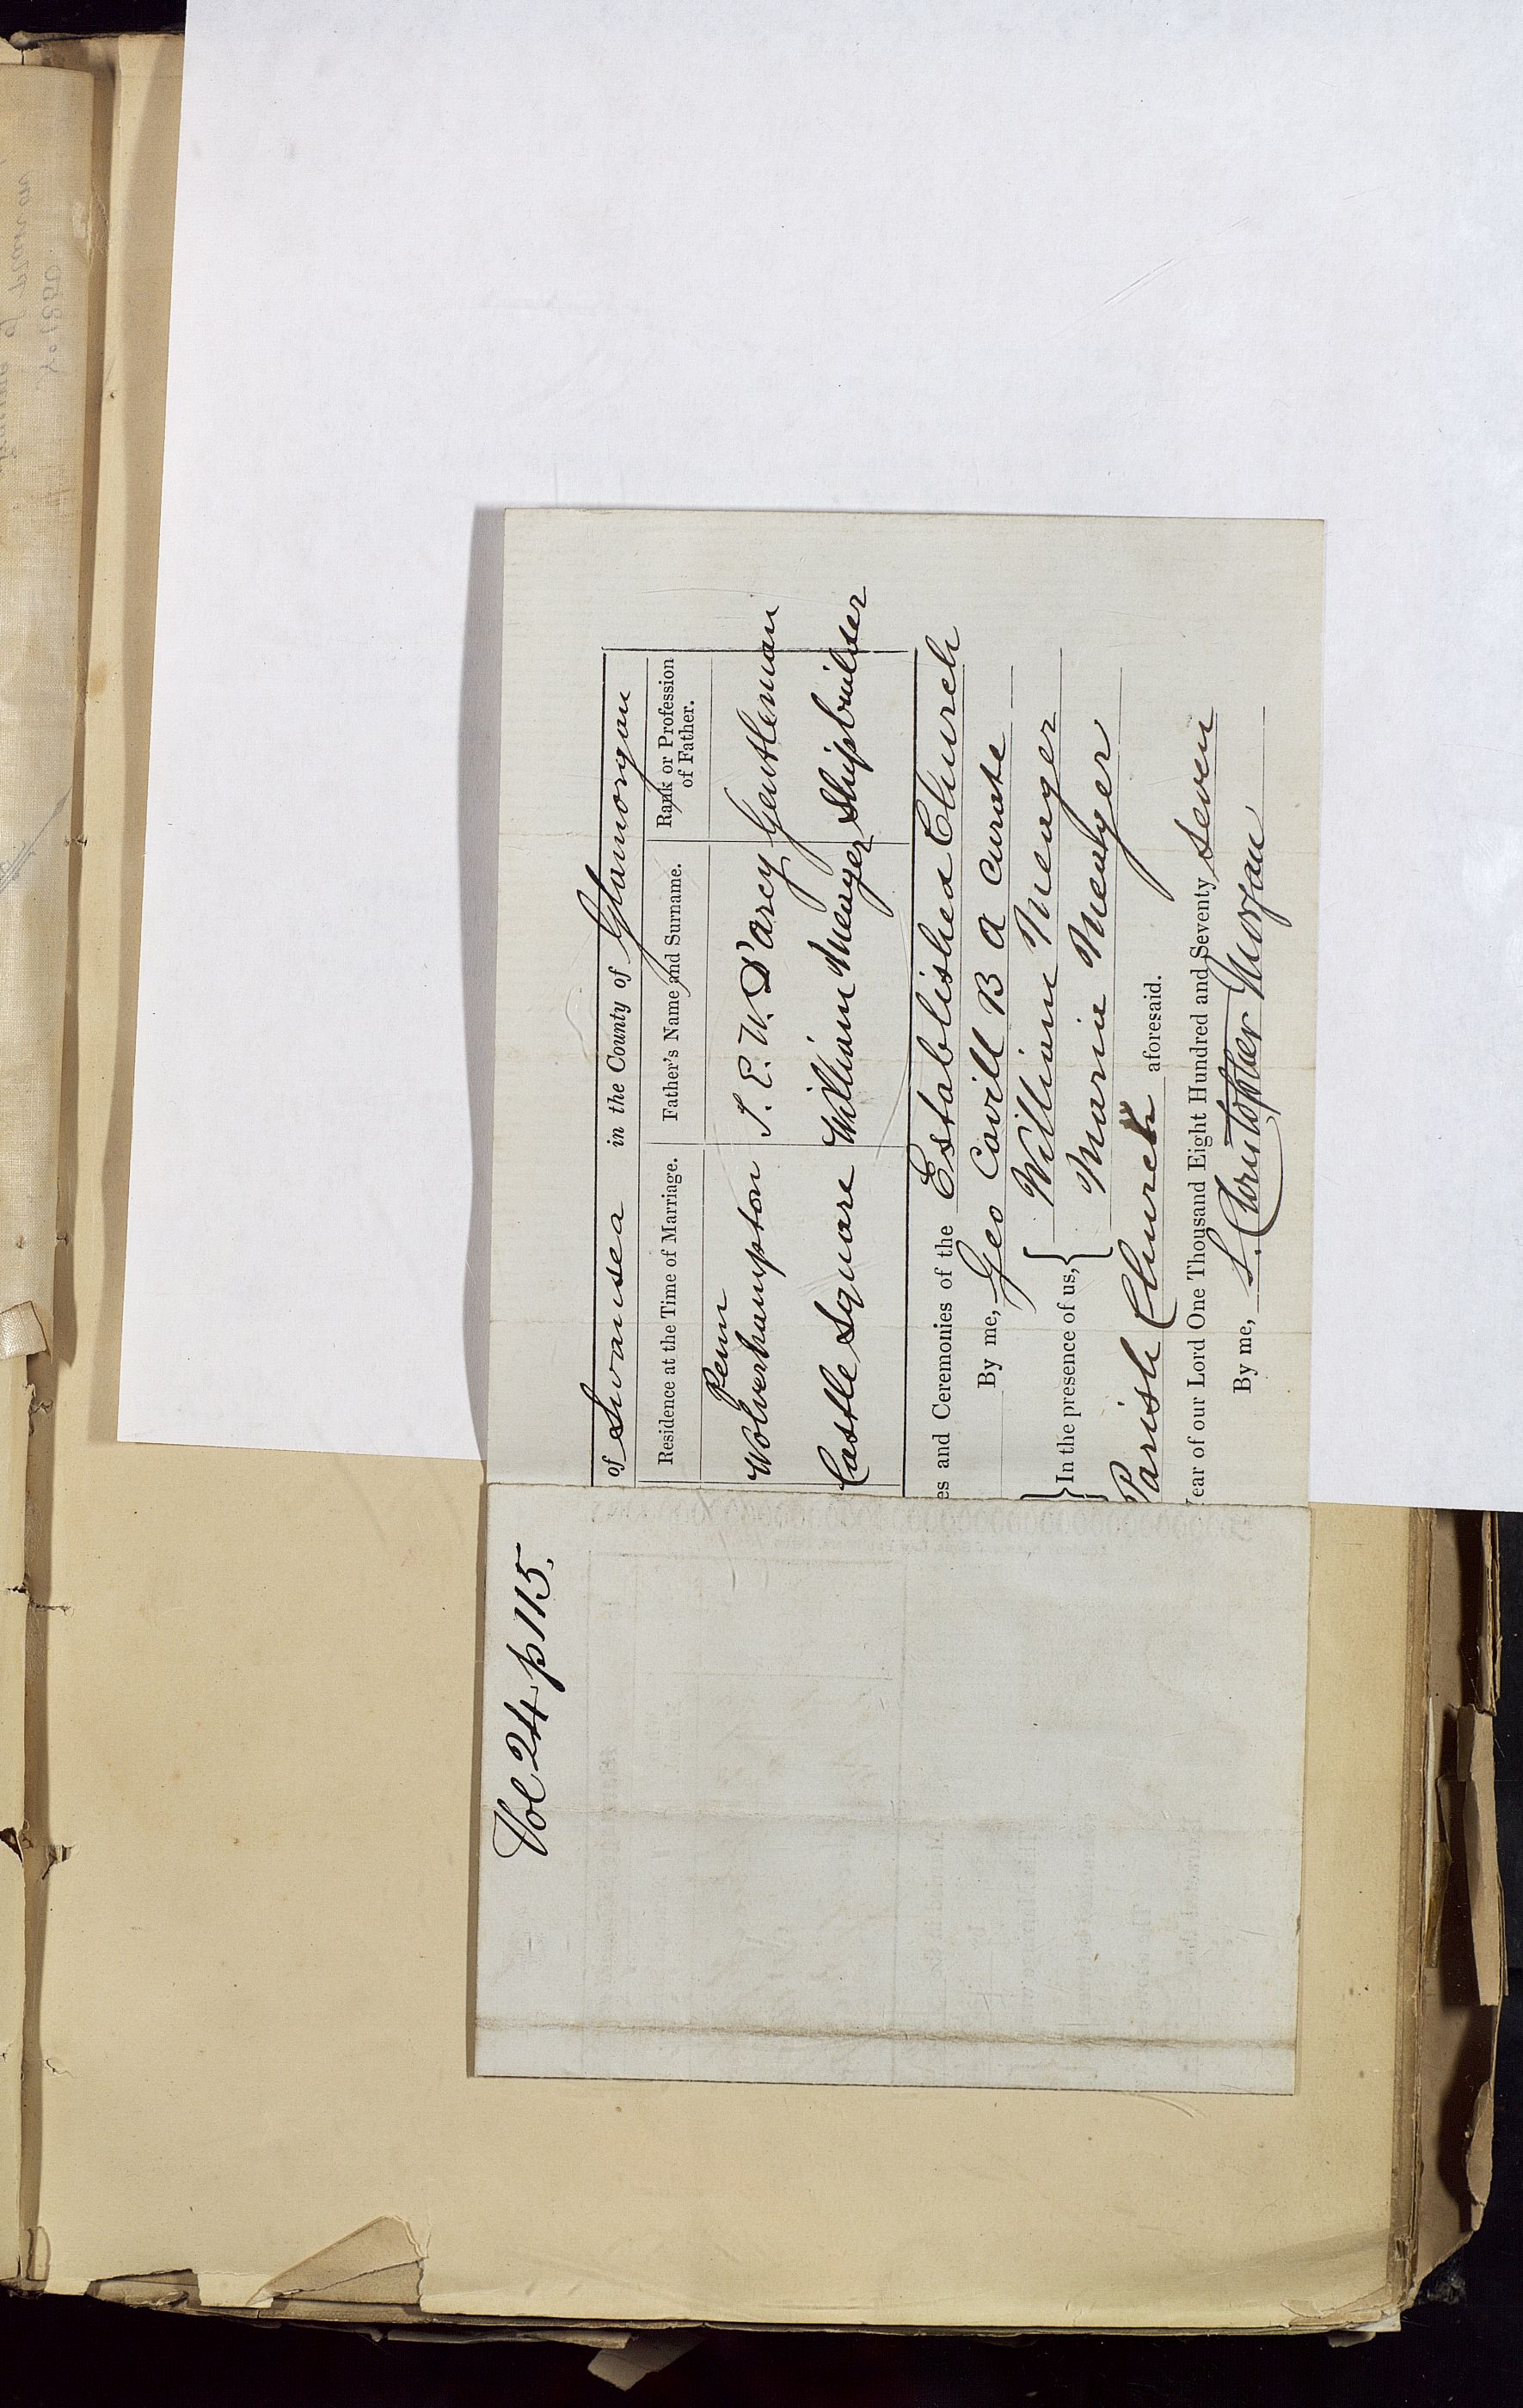 Vol 24 p 115.
of Swansea in the County of Glamorgan
Residence at the Time of Marriage. Father's Name and Surname. Rank or Profession of Father.
Penn
Wolverhampton S. E. W. D'arcy Gentleman
Castle Square William Meager Shipbuilder
es and Ceremonies of the Established Church
By me, Geo Cavill B A Curate
In the presence of us, William Meager
Maria Meager
Parish Church aforesaid.
Year of our Lord One Thousand Eight Hundred and Seventy Seven
By me, S. Christopher Morgan